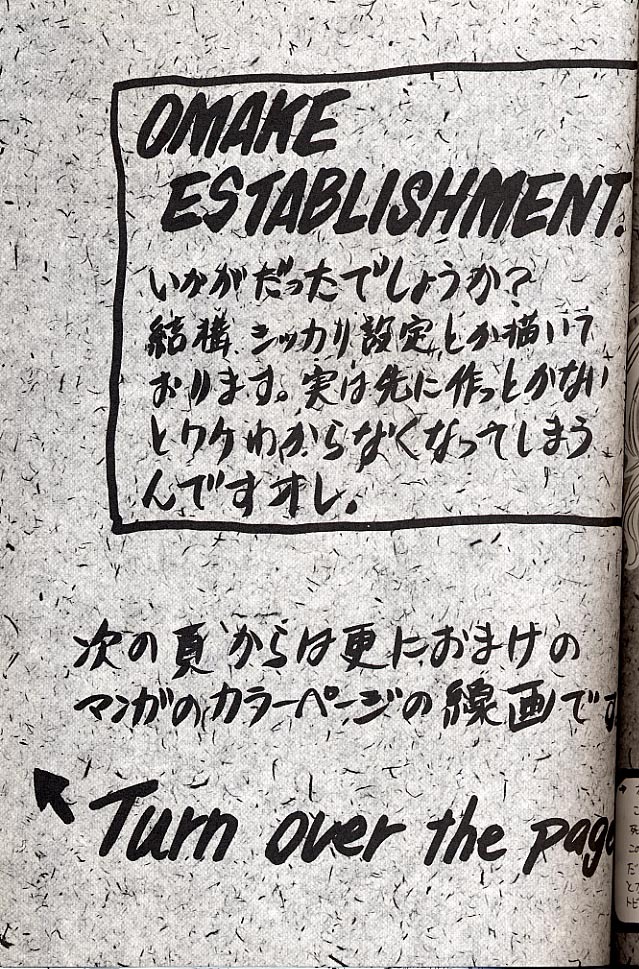 OMAKE
ESTABLISHMENT.
いかがだったでしょうか?
結構、シッカリ設定とか描いて
おります。実は先に作っとかない
とワケわからなくなってしまう
んですオレ。
次の頁からは更におまけの
マンガのカラーページの線画です
Turn over the page